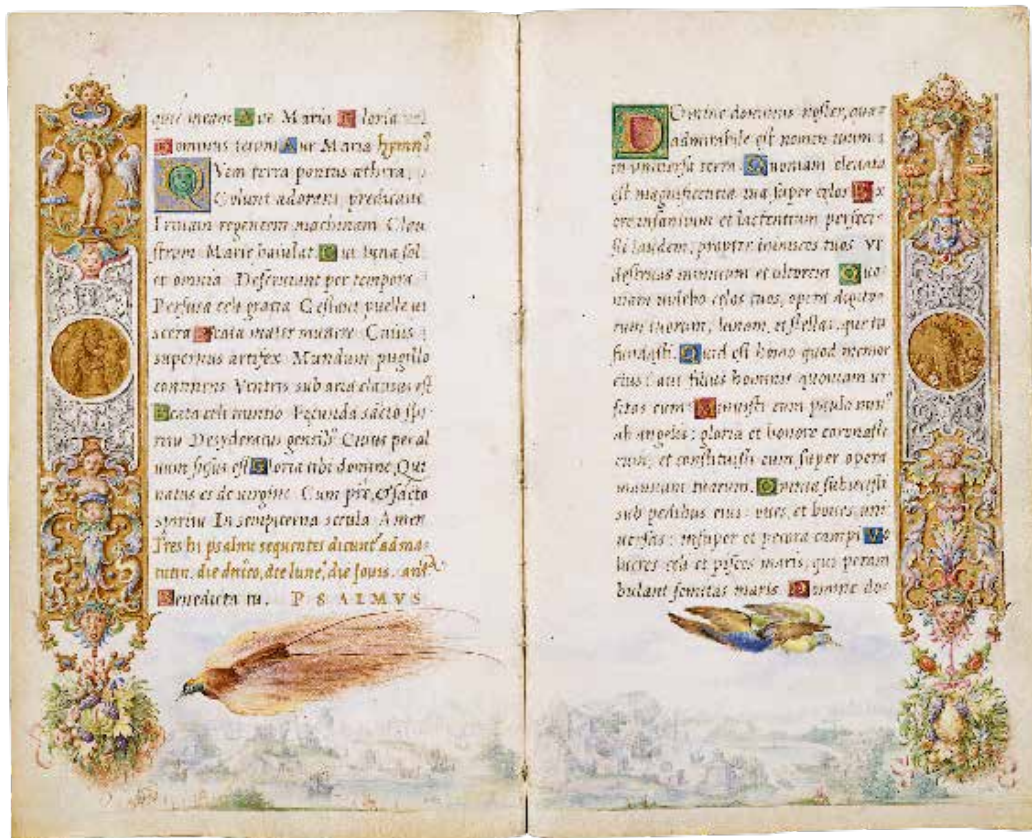 quie meam Ave Maria Gloria
Dominus tecum Ave Maria hymnꝰ
Quem terra pontus æthera,
Colunt adorant predicant
Trinam regentem machinam Clau
strum Marie baiulat. Cui luna sol
et omnia Deserviunt per tempora
Perfusa celi gratia Gestant puelle vi
scera Beata mater munere Cuius
supernus artifex Mundum pugillo
continens Ventris sub arca clausus est
Beata celi nuntio Fecunda sācto spi
ritu Desyderatus gensibꝰ Cuius per al
uum fusus est Gloria tibi domine Qui
natus es de virgine Cum pr̄e, et sācto
spiritu In sempiterna secula Amen
Tres hi psalmi sequentes dicunt̄ ad ma
tutin. die dn̄ico, die lune, die Jouis. anā
Benedicta tu. PSALMVS
Domine dominus noster, quaz
admirabile est nomen tuum
in universa terra. Quoniam elevata
est magnificentia tua super celos Ex
ore infantium et lactentium perfeci
sti laudem, propter inimicos tuos vt
destruas inimicum et ultorem Quo
niam videbo celos tuos, opera digito
rum tuorum, lunam, et stellas, que tu
fundasti. Quid est homo quod memor
eius: aut filius hominis quoniam vi
sitas eum: Minuisti eum paulo minꝰ
ab angelis: gloria et honore coronasti
eum, et constituisti eum super opera
manuum tuarum. Omnia subiecisti
sub pedibus eius: oves, et boves, uni
versas: insuper et pecora campi Vo
lucres celi et pisces maris, qui peram
bulant semitas maris. Domine do